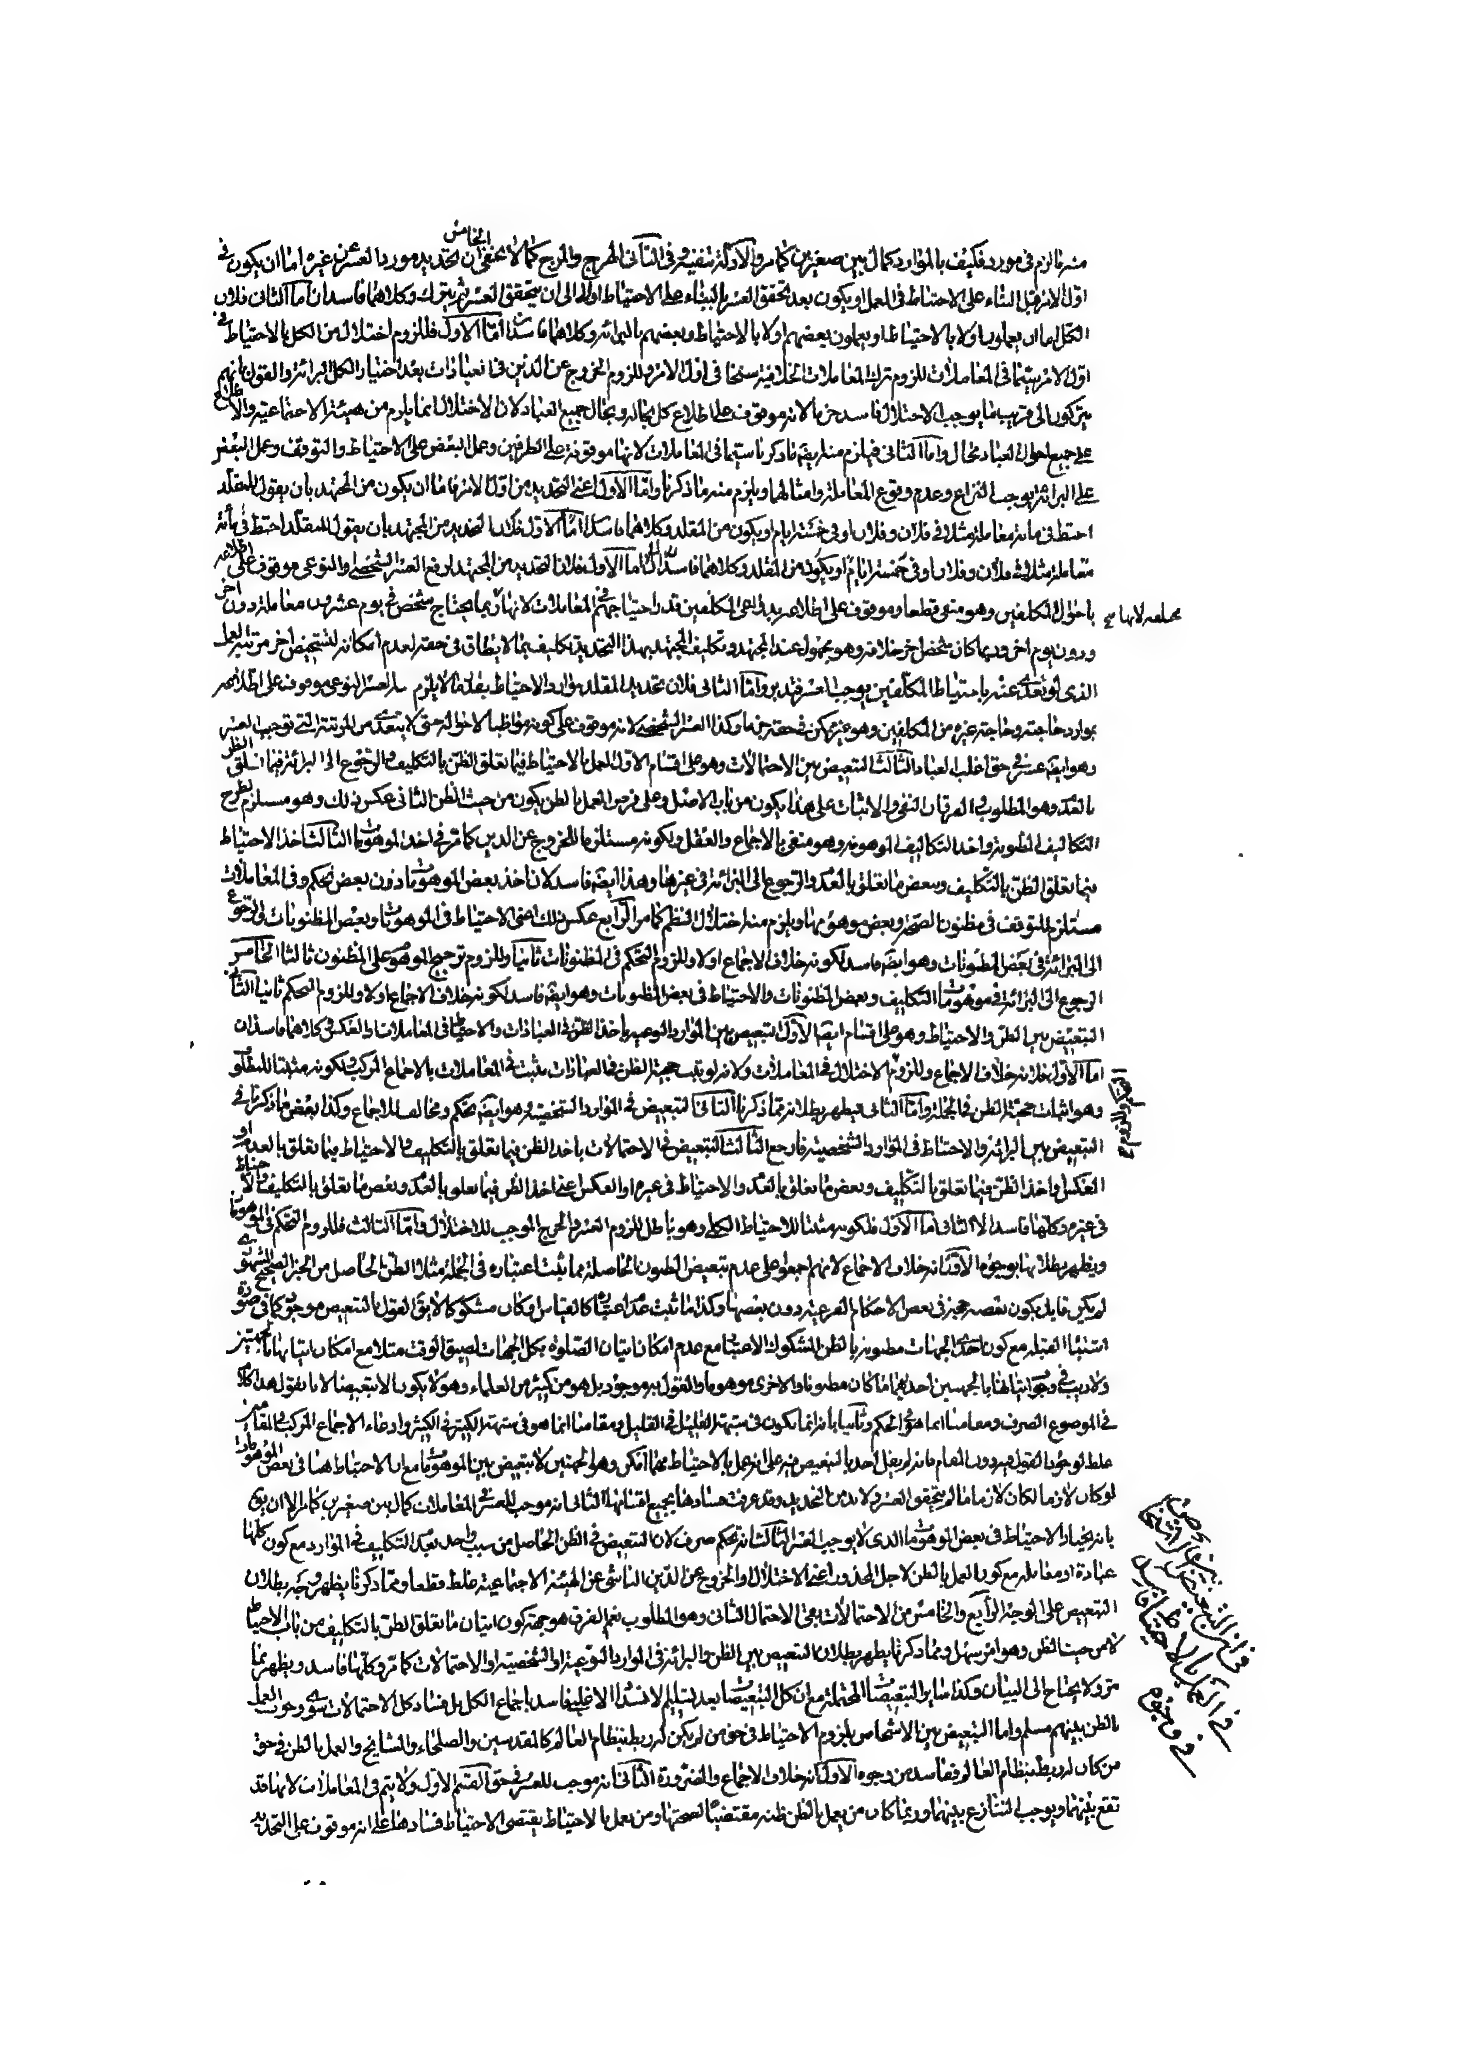 منه ما لزم في مورد فكيف بالموارد كمال بين صغيرين كما مر والادلة تنفيه وفي الثاني الحرج والمرج كما لا يخفى الخامس ان تحديد مورد العسر عن غيره اما ان يكون في
اول الامر قبل البناء على الاحتياط في العمل او يكون بعد تحقق العسر بالبناء على الاحتياط اولا الى ان يتحقق العسر ثم يترك وكلاهما فاسدان اما الثاني فلان
الكل اما ان يعملون اولا بالاحتياط او يعملون بعضهم اولا بالاحتياط وبعضهم بالبرائة وكلاهما فاسد اما الاول فللزوم اختلال من الكل بالاحتياط في
اول الامر سيما في المعاملات للزوم ترك المعاملات الخلافية سيما في اول الامر وللزوم الخروج عن الدين في العبادات بعد اختيار الكل البرائة والقول بانهم
يتركون الى قريب ما يوجب الاختلال فاسد جزما لانه موقوف على اطلاع كل بحاله وبحال جميع العباد لان الاختلال انما يلزم من هيئة الاجتماعية والاطلاع
على جميع احوال العباد محال واما الثاني فيلزم منه ايضا ما ذكرنا سيما في المعاملات لانها موقوفة على الطرفين وعمل البعض على الاحتياط والتوقف وعمل البعض
على البرائة يوجب النزاع وعدم وقوع المعاملة وامثالها ويلزم منه ما ذكرنا واما الاول اعني التحديد من اول الامر فاما ان يكون من المجتهد بان يقول للمقلد
احتط في مائة معاملة مثلا في فلان وفلان او في خمسة ايام او يكون من المقلد وكلاهما فاسد اما الاول فلان التحديد من المجتهد بان يقول للمقلد احتط في مأة
معاملة مثلا في فلان وفلان او في خمسة ايام او يكون من المقلد وكلاهما فاسدان اما الاول فلان التحديد من المجتهد لرفع العسر الشخصي والنوعي موقوف على اطلاعه
باحوال المكلفين وهو منفي قطعا وموقوف على اطلاعه بدواعي المكلفين قدر احتياجهم في المعاملات لانها ربما يحتاج شخص في يوم عشرون معاملة دون اخر
ودون يوم اخر وربما كان شخص اخر خلافه وهو مجهول عند المجتهد وتكليف المجتهد بهذا التحديد تكليف بما لا يطاق في حقه لعدم امكانه لتشخيص اخر مرتبة العمل
الذي لو تعدى عنه باحتياط المكلفين يوجب العسر فتدبر واما الثاني فلان تحديد المقلد موارد الاحتياط بقدر ما لا يلزم العسر النوعي موقوف على اطلاعه
بموارد حاجته وحاجة غيره من المكلفين وهو غير ممكن في حقه جزما وكذا العسر الشخصي لانه موقوف على كونه مواظبا لاحواله حتى لا يتعدى من المرتبة التي توجب العسر
وهو ايضا عسر في حق اغلب العباد الثالث التبعيض بين الاحتمالات وهو على اقسام الاول العمل بالاحتياط فيما تعلق الظن بالتكليف والرجوع الى البرائة فيما تعلق الظن
بالعدم وهو المطلوب والفرق ان النفي والاثبات على هذا يكون من باب الاصل وعلى فرض العمل بالظن يكون من حيث الظن الثاني عكس ذلك وهو مستلزم لطرح
التكاليف المظنونة واخذ التكاليف الموهومة وهو منفي بالاجماع والعقل ولكونه مستلزما للخروج عن الدين كما مر في اخذ الموهومات الثالث اخذ الاحتياط
فيما تعلق الظن بالتكليف وبعض ما تعلق بالعدم والرجوع الى البرائة في غيرها وهذا ايضا فاسد لان اخذ بعض الموهومات دون بعض تحكم وفي المعاملات
مستلزم للتوقف في مظنون الصحة وبعض موهومها ويلزم منه اختلال النظم كما مر الرابع عكس ذلك اعني الاحتياط في الموهومات وبعض المظنونات في الرجوع
الى البرائة في بعض المظنونات وهو ايضا فاسد لكونه خلاف الاجماع اولا وللزوم التحكم في المظنونات ثانيا وللزوم ترجيح الموهوم على المظنون ثالثا الخامس
الرجوع الى البرائة في موهومات التكليف وبعض المظنونات والاحتياط في بعض المظنونات وهو ايضا فاسد لكونه خلاف الاجماع اولا وللزوم التحكم ثانيا الثاني
التبعيض بين الظن والاحتياط وهو على اقسام ايضا الاول تبعيض بين الموارد النوعية باخذ الظن في العبادات والاحتياط في المعاملات والعكس وكلاهما فاسدان
اما الاول فلانه خلاف الاجماع وللزوم الاختلال في المعاملات ولانه لو ثبت حجية الظن في العبادات يثبت في المعاملات بالاجماع المركب ولكونه مثبتا للمطلوب
وهو اثبات حجية الظن في الجملة واما الثاني فيظهر بطلانه مما ذكرنا الثاني التبعيض في الموارد الشخصية وهو ايضا تحكم ومخالف للاجماع وكذا بعض ما ذكرنا في
التبعيض بين البرائة والاحتياط في الموارد الشخصية فارجع الثالث التبعيض في الاحتمالات باخذ الظن فيما تعلق بالتكليف والاحتياط فيما تعلق بالعدم او
العكس واخذ الظن فيما تعلق بالتكليف وبعض ما تعلق بالعدم والاحتياط في غيره او العكس اعني اخذ الظن فيما تعلق بالعدم وبعض ما تعلق بالتكليف والاحتياط
في غيره وكلها فاسد الا الثاني اما الاول فلكونه مثبتا للاحتياط الكلي وهو باطل للزوم العسر والحرج الموجب للاختلال واما الثالث فللزوم التحكم في الموهومات
ويظهر بطلانها بوجوه الاول انه خلاف الاجماع لانهم اجمعوا على عدم تبعيض الظنون الحاصلة مما ثبت اعتباره في الجملة مثلا الظن الحاصل من الخبر الصحيح المشهور
لم يكن قايل يكون بعضه حجة في بعض الاحكام الفرعية دون بعضها وكذا ما ثبت عدم اعتباره كالقياس او كان مشكوكا لا يق القول بالتبعيض موجود كما في صورة
اشتباه القبلة مع كون احدى الجهات مظنونة بالظن المشكوك الاعتبار مع عدم امكان اتيان الصلوة بكل الجهات لضيق الوقت مثلا مع امكان اتيانها بالجهتين
ولا ريب في وجوب اتيانها بالجهتين احدهما ما كان مظنونا والاخرى موهوما والقول به موجود بل هو من كثير من العلماء وهو لا يكون الا تبعيضا لانا نقول هذا كلام
في الموضوع الصرف ومقامنا انما هو في الحكم وثانيا بانه انما يكون في شبهة القليل في القليل ومقامنا انما هو في شبهة الكثير في الكثير وادعاء الاجماع المركب في المقامين
غلط لوجود القول فيه دون المقام فانه لم يقل احد بالتبعيض فيه على انه عمل بالاحتياط مهما امكن وهو الجهتين لا تبعيض بين الموهومات مع ان الاحتياط هنا في بعض الموهومات
لو كان لازما لكان لازما ما لم يتحقق العسر ولا بد من التحديد وقد عرفت فساد هذا بجميع اقسامها الثاني انه موجب للعسر في المعاملات كمال بين صغيرين كما مر الا ان يق
بانه يختار الاحتياط في بعض الموهومات الذي لا يوجب العسر الثالث انه تحكم صرف لان التبعيض في الظن الحاصل من سبب واحد بعدم التكليف في الموارد مع كون كلها
عبادة او معاملة مع كون العمل بالظن لاجل المحذورات اعني الاختلال والخروج عن الدين الناشي عن الهيئة الاجتماعية غلط قطعا ومما ذكرنا يظهر وجه بطلان
التبعيض على الوجه الرابع والخامس من الاحتمالات بقي الاحتمال الثاني وهو المطلوب نعم الفرق هو جهة كون اتيان ما تعلق الظن بالتكليف من باب الاحتياط
لا من حيث الظن وهو امر سهل ومما ذكرنا يظهر بطلان التبعيض بين الظن والبرائة في الموارد النوعية او الشخصية او الاحتمالات كما مر وكلها فاسد ويظهر مما
مر ولا يحتاج الى البيان وكذا ساير التبعيضات المحتملة مع ان كل التبعيضات بعد تسليم الانسداد الاغلبي فاسد باجماع الكل بل فساد كل الاحتمالات سوى وجوب العمل
بالظن بينهم مسلم واما التبعيض بين الاشخاص بلزوم الاحتياط في حق من لم يكن له ربط بنظام العالم كالمقدسين والصلحاء والمشايخ والعمل بالظن في حق
من كان له ربط بنظام العالم ففاسد من وجوه الاول انه خلاف الاجماع والضرورة الثاني انه موجب للعسر في حق القسم الاول ولا يتم في المعاملات لانها قد
تقع بينهما ويوجب التنازع بينهما وربما كان من يعمل بالظن ظنه مقتضيا لصحتها ومن يعمل بالاحتياط يقتضي الاحتياط فسادها على انه موقوف على التحديد
في ان التبعيض بين الاشخاص
في العمل بالاحتياط فاسد
في وجوه